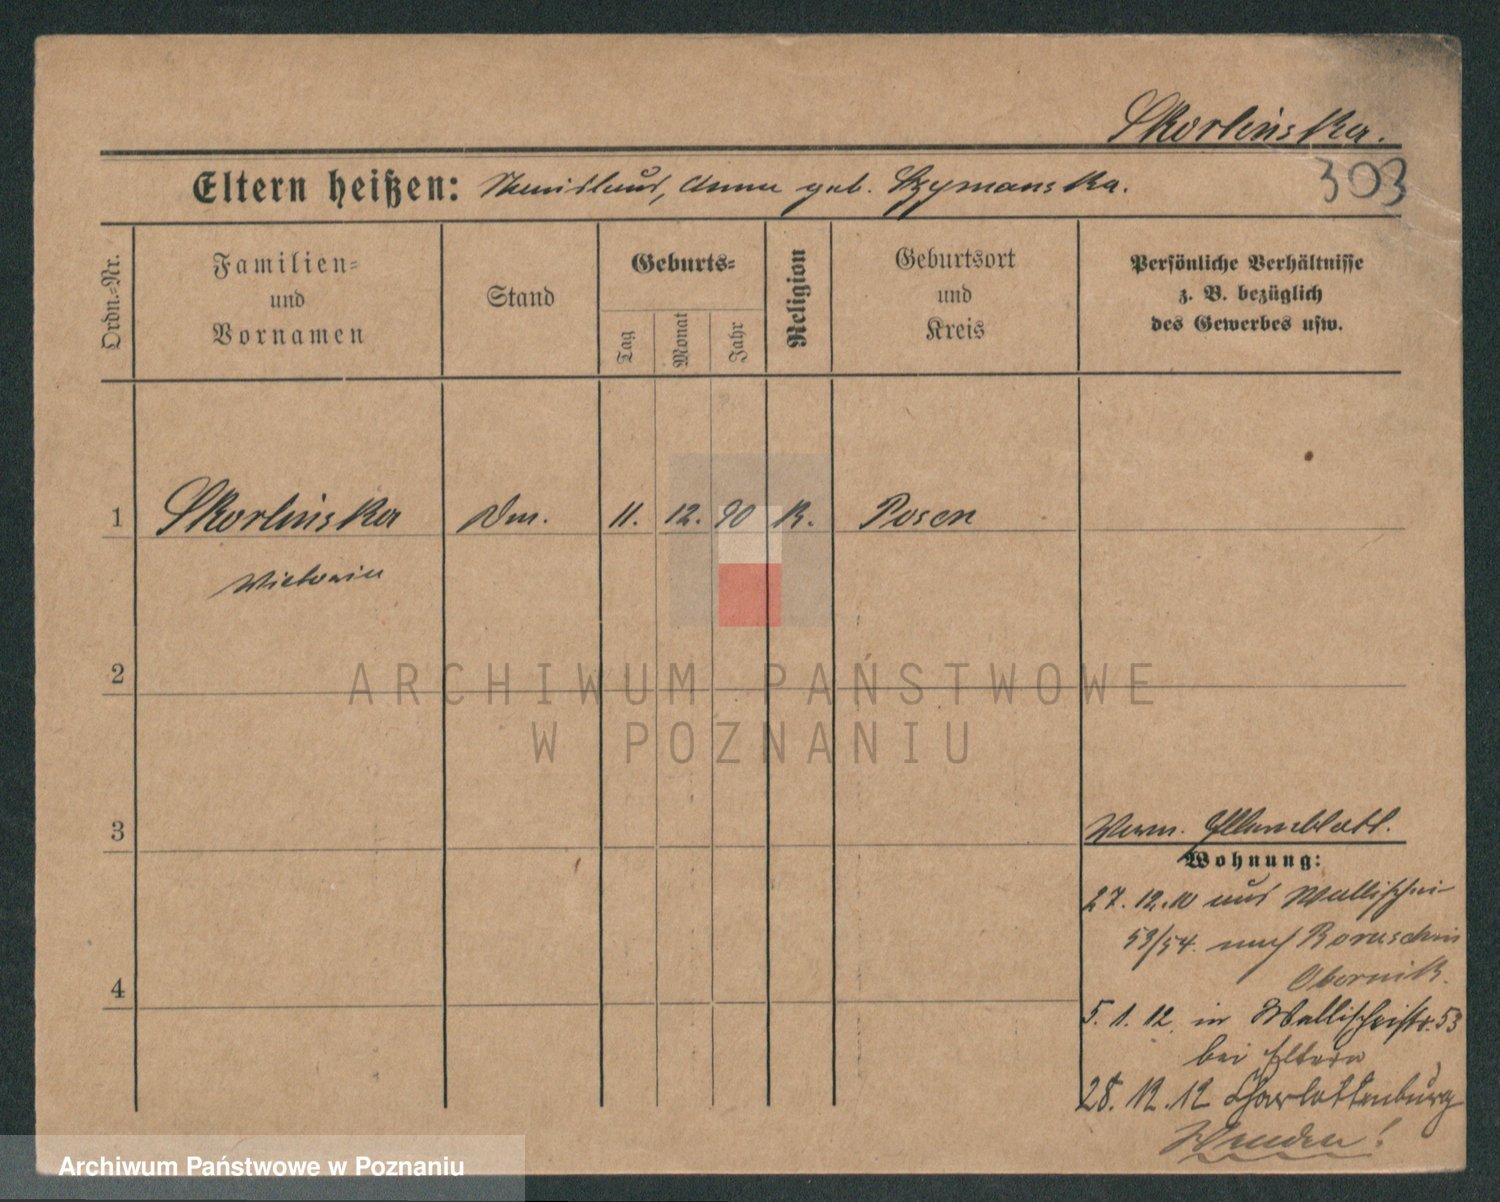 Skorlinska.
303
Eltern heißen: Stanislaus, Anna geb. Szymanska.
Ordn.-Nr.
Familien-
und
Vornamen
Stand
Geburts-
Tag
Monat
Jahr
Religion
Geburtsort
und
Kreis
Persönliche Verhältnisse
z. B. bezüglich
des Gewerbes usw.
1 Skorlinska 11. 12. 90 K. Posen
Victoria
2
ARCHIWUM PAŃSTWOWE
W POZNANIU
3
Verm. Elternblatt.
Wohnung:
27.12.10 aus Wallischei
53/54. nach
Obornik.
4
5.1.12 in Wallischeistr. 53
bei Eltern
28.12.12 Charlottenburg
Wenden!
Archiwum Państwowe w Poznaniu